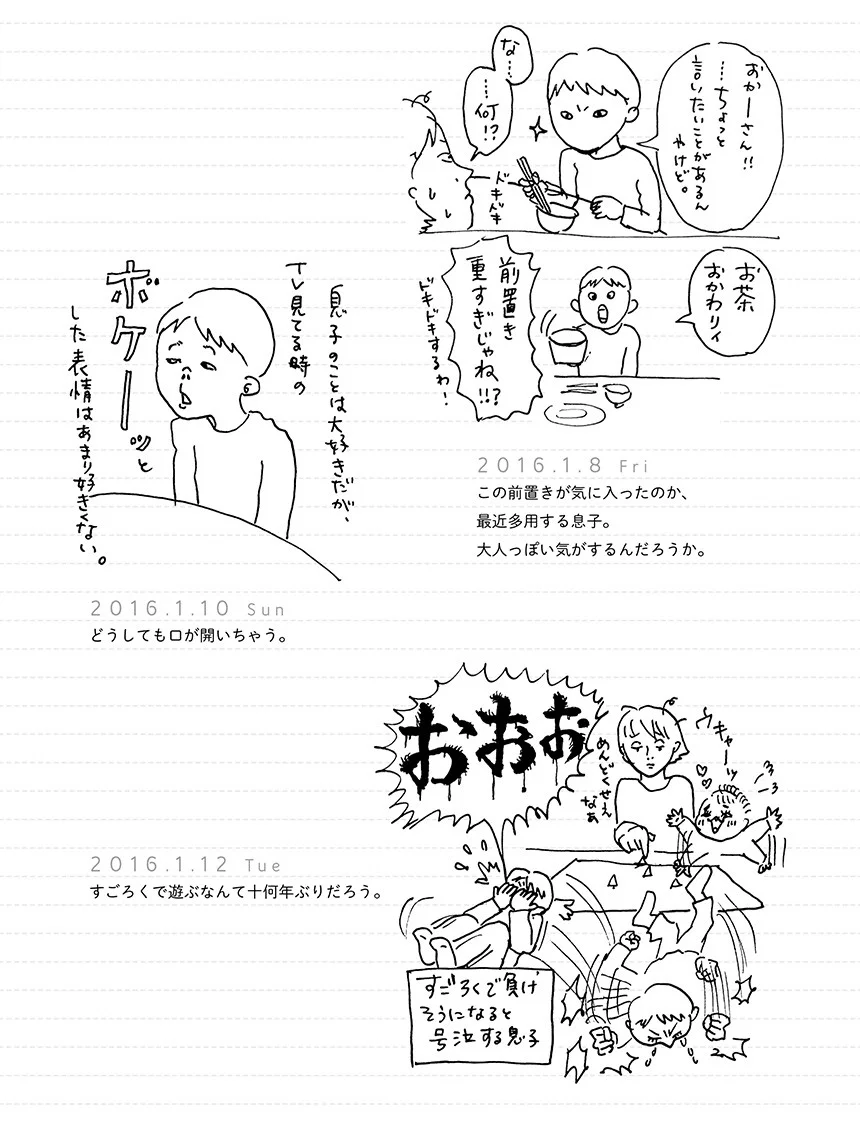 おかーさん!!
…ちょっと
言いたいことがあるん
やけど。
な…
…何!?
ドキドキ
お茶
おかわりィ
前置き
重すぎじゃね!!?
ドキドキするわ!
2016.1.8 Fri
この前置きが気に入ったのか、
最近多用する息子。
大人っぽい気がするんだろうか。
息子のことは大好きだが、
TV見てる時の
ボケーッと
した表情はあまり好きくない。
2016.1.10 Sun
どうしても口が開いちゃう。
おおお
めんどくせえ
なあ
ウキャーッ
すごろくで負け
そうになると
号泣する息子
2016.1.12 Tue
すごろくで遊ぶなんて十何年ぶりだろう。